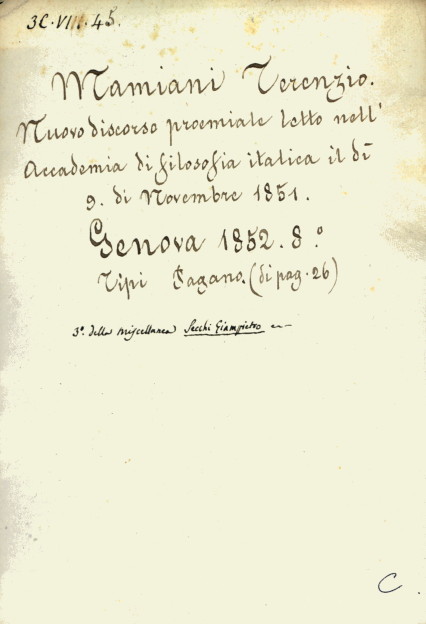 3C·VIII·45.
Mamiani Terenzio.
Nuovo discorso proemiale letto nell'
Accademia di filosofia italica il dì
9. di Novembre 1851.
Genova 1852. 8.°
Tipi Fagano. (di pag. 26)
3°. della miscellanea Secchi Giampietro
C